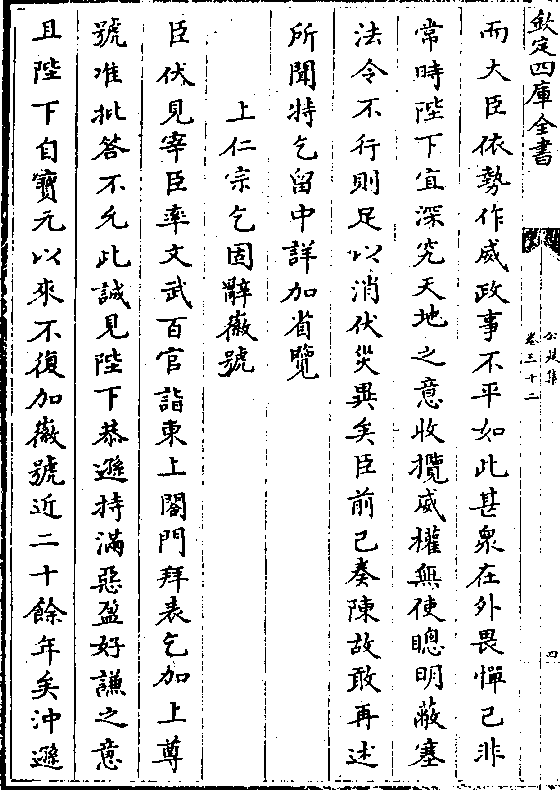 欽定四庫全書
公是集
卷三十二
四
而大臣依勢作威政事不平如此甚衆在外畏憚已非
常時陛下宜深究天地之意收攬威權無使聰明蔽塞
法令不行則足以消伏災異矣臣前已奏陳故敢再述
所聞特乞留中詳加省覽
上仁宗乞固辭徽號
臣伏見宰臣率文武百官詣東上閤門拜表乞加上尊
號准批答不允此誠見陛下恭遜持滿惡盈好謙之意
且陛下自寳元以來不復加徽號近二十餘年矣沖遜